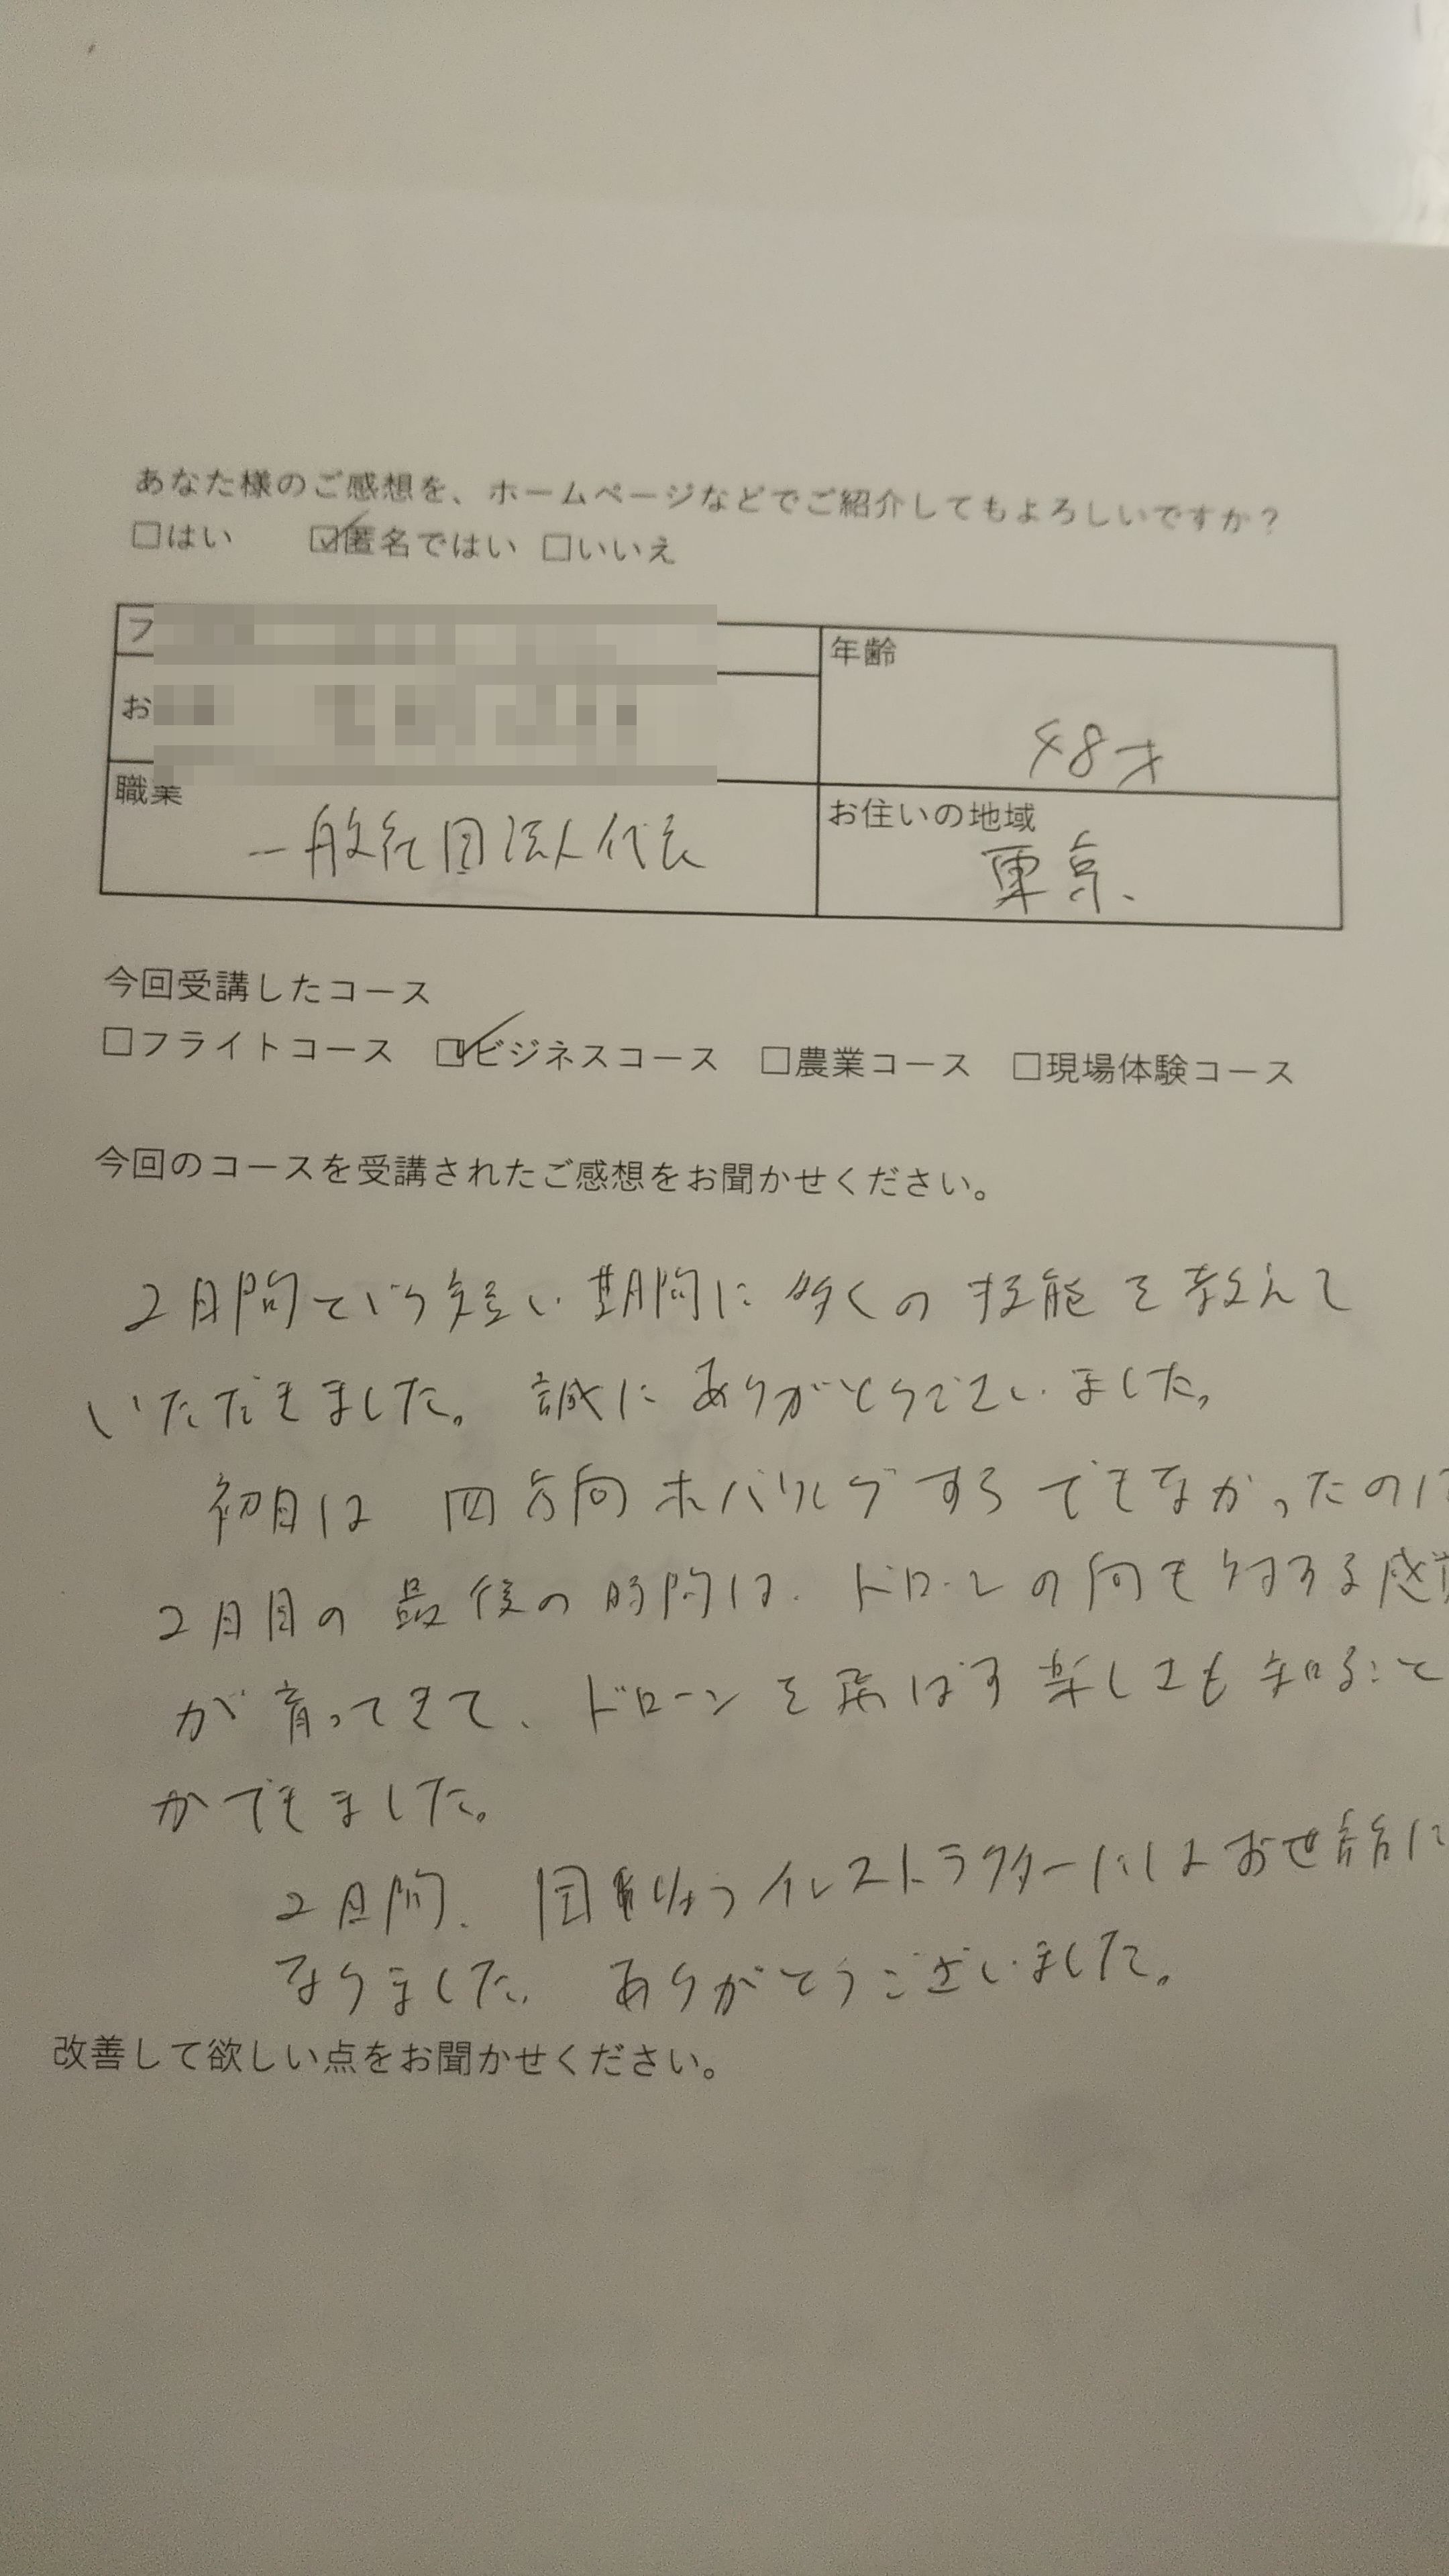 あなた様のご感想を、ホームページなどでご紹介してもよろしいですか？
□はい ☑匿名ではい □いいえ
フ
お
年齢
48才
職業
一般社団法人代表
お住いの地域
東京.
今回受講したコース
□フライトコース ☑ビジネスコース □農業コース □現場体験コース
今回のコースを受講されたご感想をお聞かせください。
2日間という短い期間に多くの技能を教えて
いただきました。誠にありがとうございました。
初日は四方向ホバリングすらできなかったのに
2日目の最後の時間は、ドローンの向き対する感
が育ってきて、ドローンを飛ばす楽しさも知ること
ができました。
2日間、インストラクターにはお世話に
なりました。ありがとうございました。
改善して欲しい点をお聞かせください。